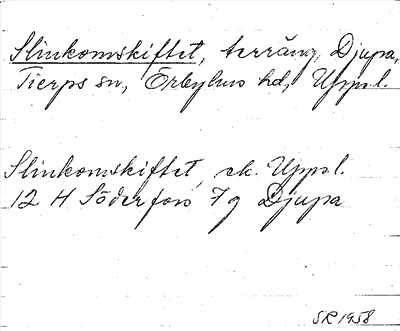 Slinkomskiftet, terräng, Djupa,
Tierps sn, Örbyhus hd, Uppl.
Slinkomskiftet, ek. Uppl.
12 H Söderfors 7 g Djupa
SR 1958